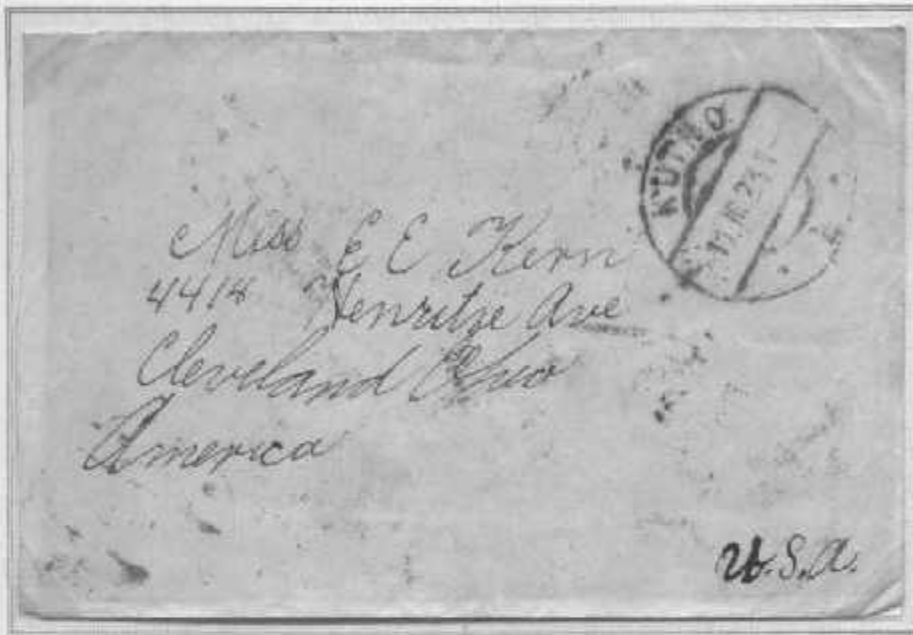 KUTNO
Miss E E Kern
4414 Henritze Ave
Cleveland Ohio
America
U.S.A.